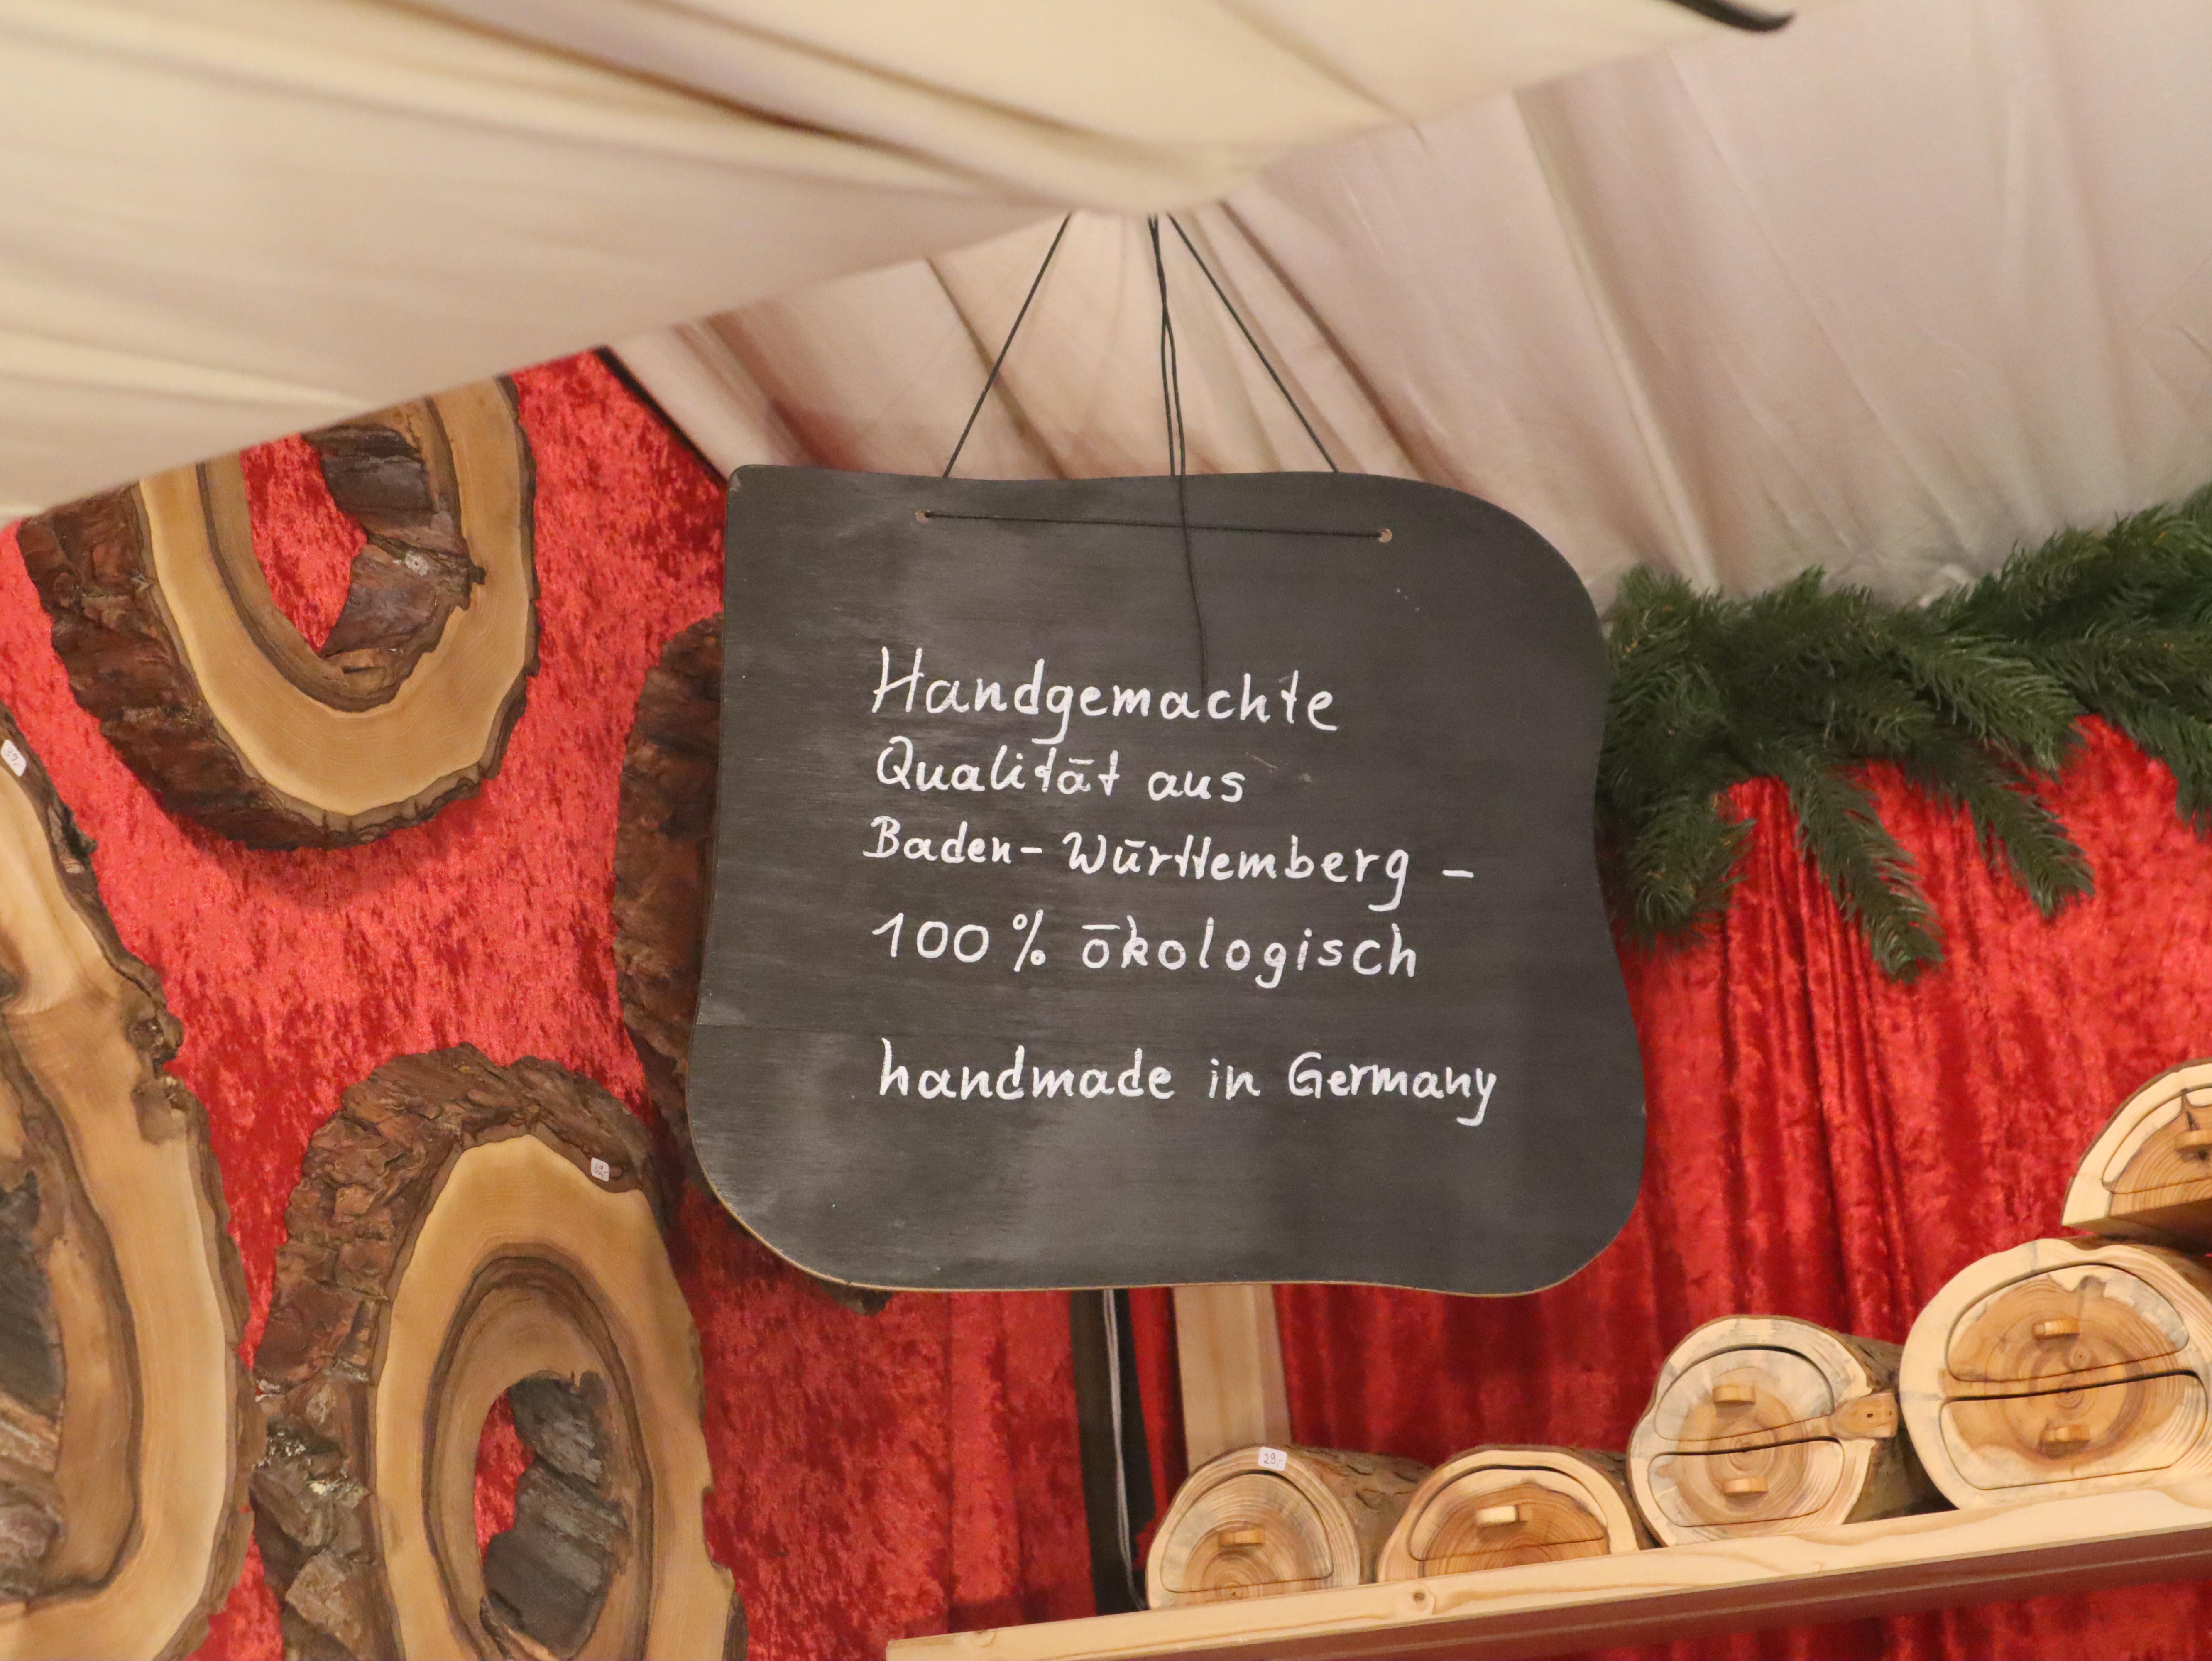 Handgemachte
Qualität aus
Baden-Württemberg -
100% ökologisch
handmade in Germany
29,-